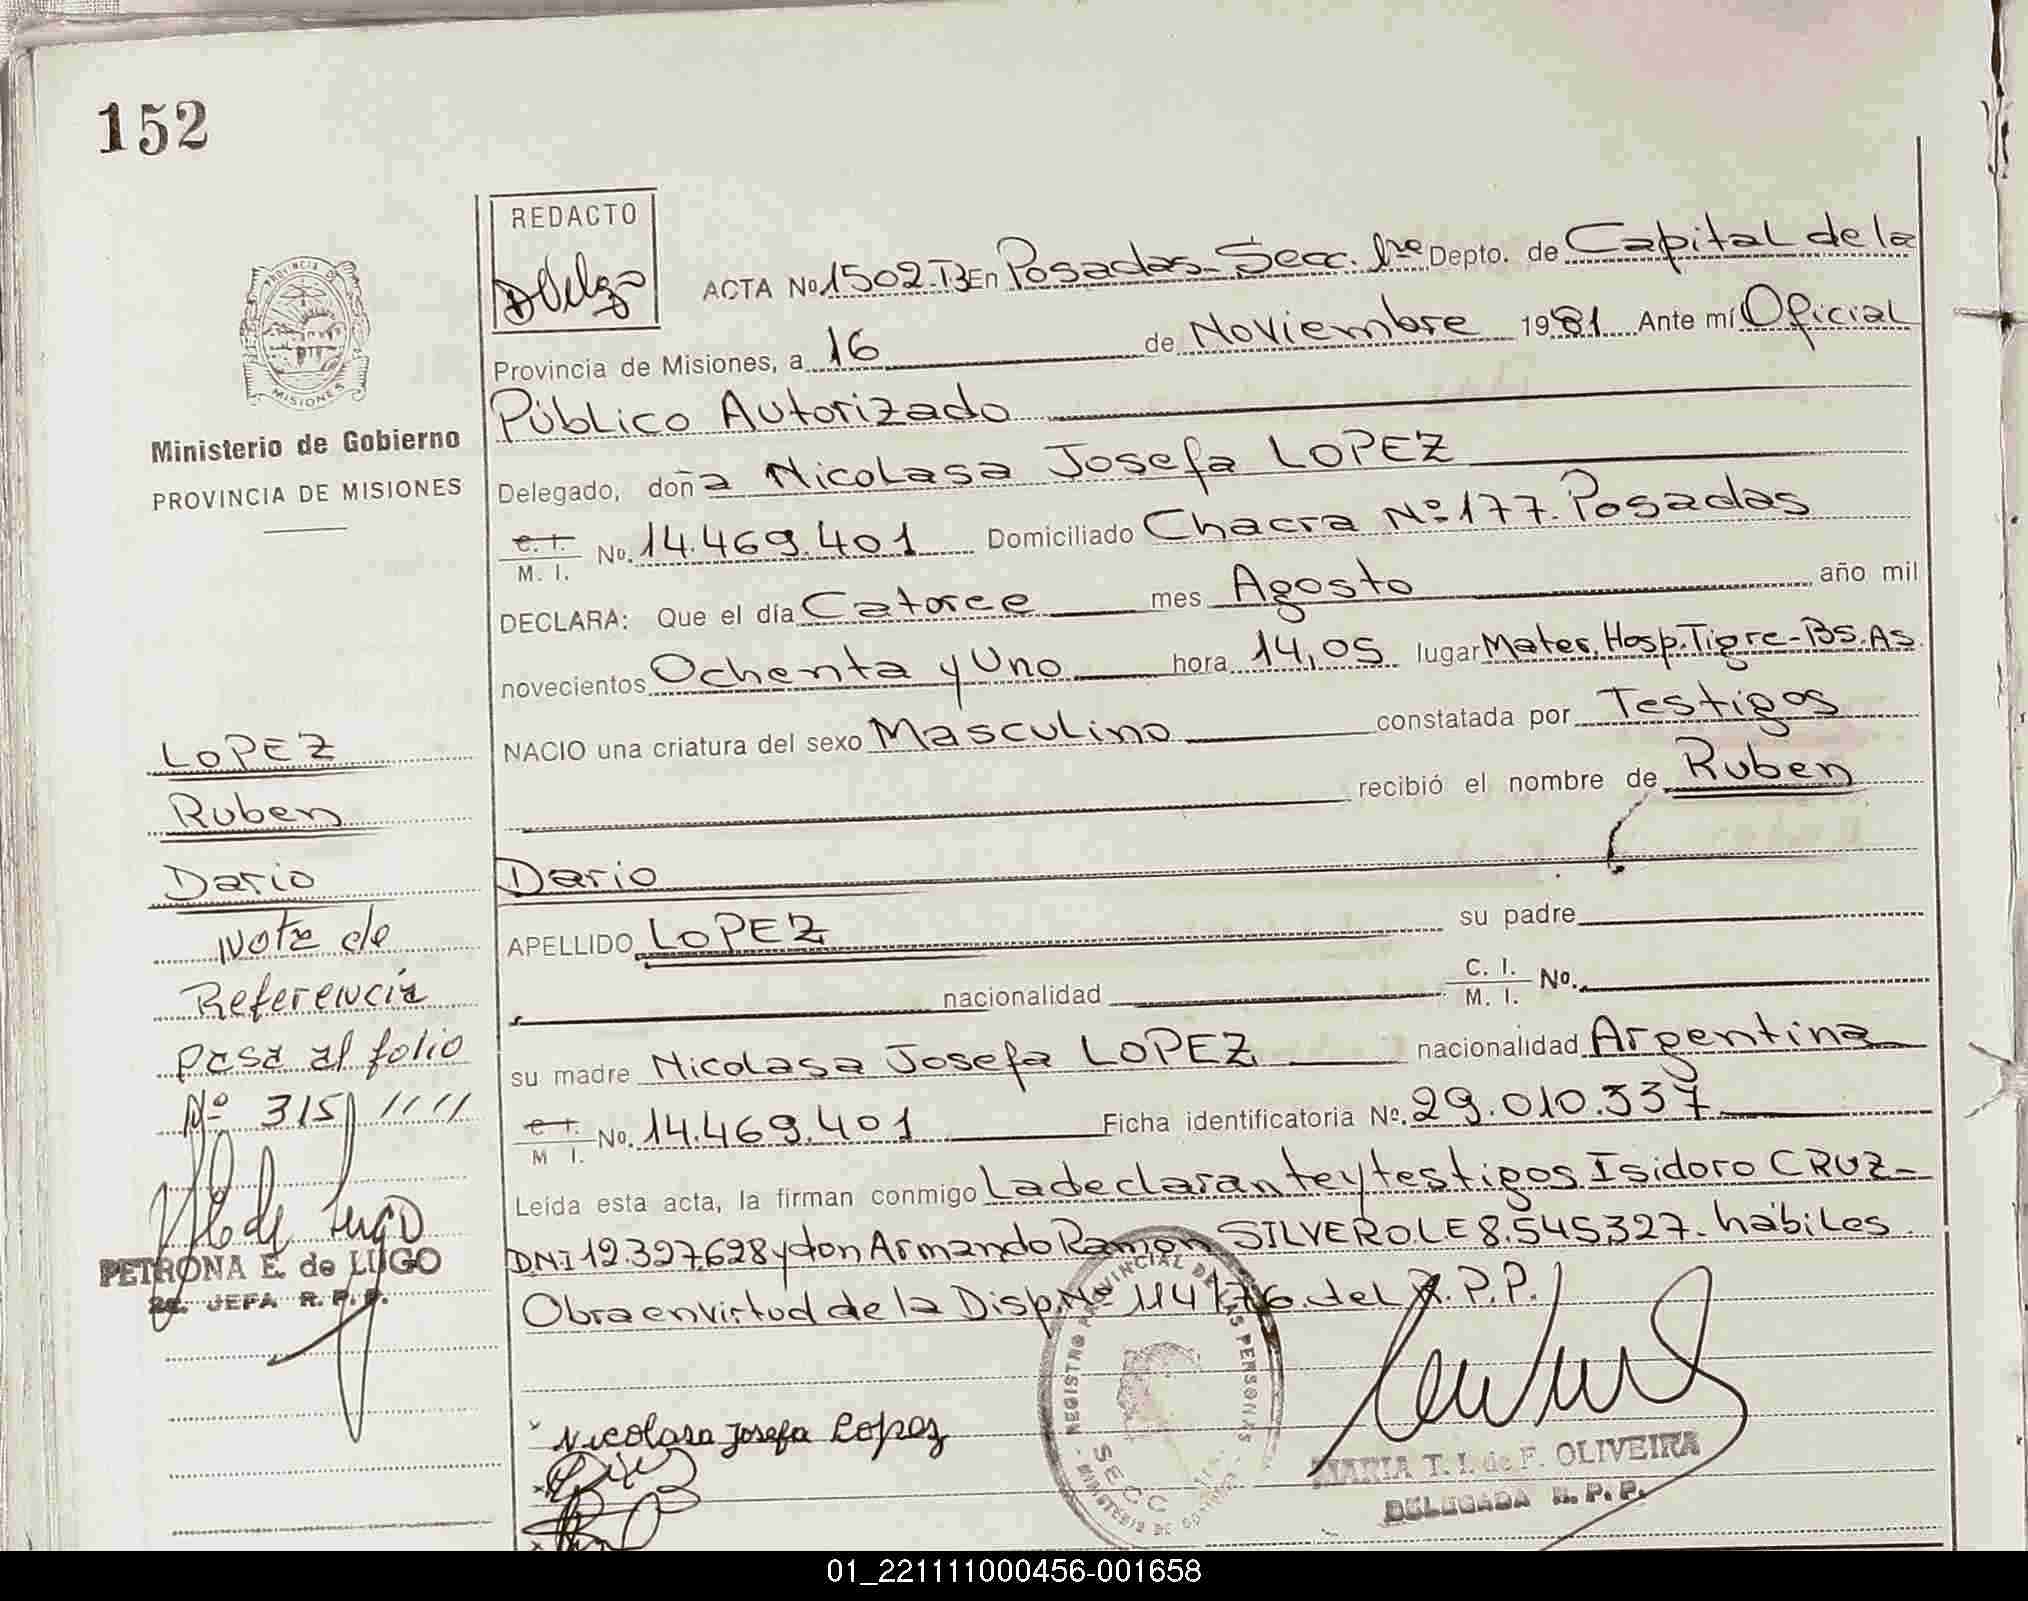 152
REDACTO
PROVINCIA DE
MISIONES
Ministerio de Gobierno
PROVINCIA DE MISIONES
ACTA No 1502-B En Posadas-Secc. 1ra Depto. de Capital de la
Provincia de Misiones, a 16 de Noviembre 1981 Ante mí Oficial
Público Autorizado
Delegado, doña Nicolasa Josefa LOPEZ
C. I.
M. I. No. 14.469.401 Domiciliado Chacra Nº 177. Posadas
DECLARA: Que el día Catorce mes Agosto año mil
novecientos Ochenta y Uno hora 14,05 lugar Mater. Hosp. Tigre-Bs.As.
NACIO una criatura del sexo Masculino constatada por Testigos
recibió el nombre de Ruben
Dario
APELLIDO LOPEZ su padre
nacionalidad C. I. M. I. No.
su madre Nicolasa Josefa LOPEZ nacionalidad Argentina
C. I.
M I. No. 14.469.401 Ficha identificatoria Nº. 29.010.337
Leída esta acta, la firman conmigo La declarante y testigos Isidoro CRUZ-
DNI 12.327.628 y don Armando Ramon SILVERO LE 8.545.327. hábiles
Obra en virtud de la Disp. Nº 114/76. del R.P.P.
LOPEZ
Ruben
Dario
Nota de
Referencia
pasa al folio
Nº 315
PETRONA E. de LUGO
2a. JEFA R. P. P.
Nicolasa Josefa Lopez
REGISTRO PROVINCIAL DE LAS PERSONAS
MINISTERIO DE GOBIERNO
SECC
MARIA T. I. de F. OLIVEIRA
DELEGADA R. P. P.
01_221111000456-001658